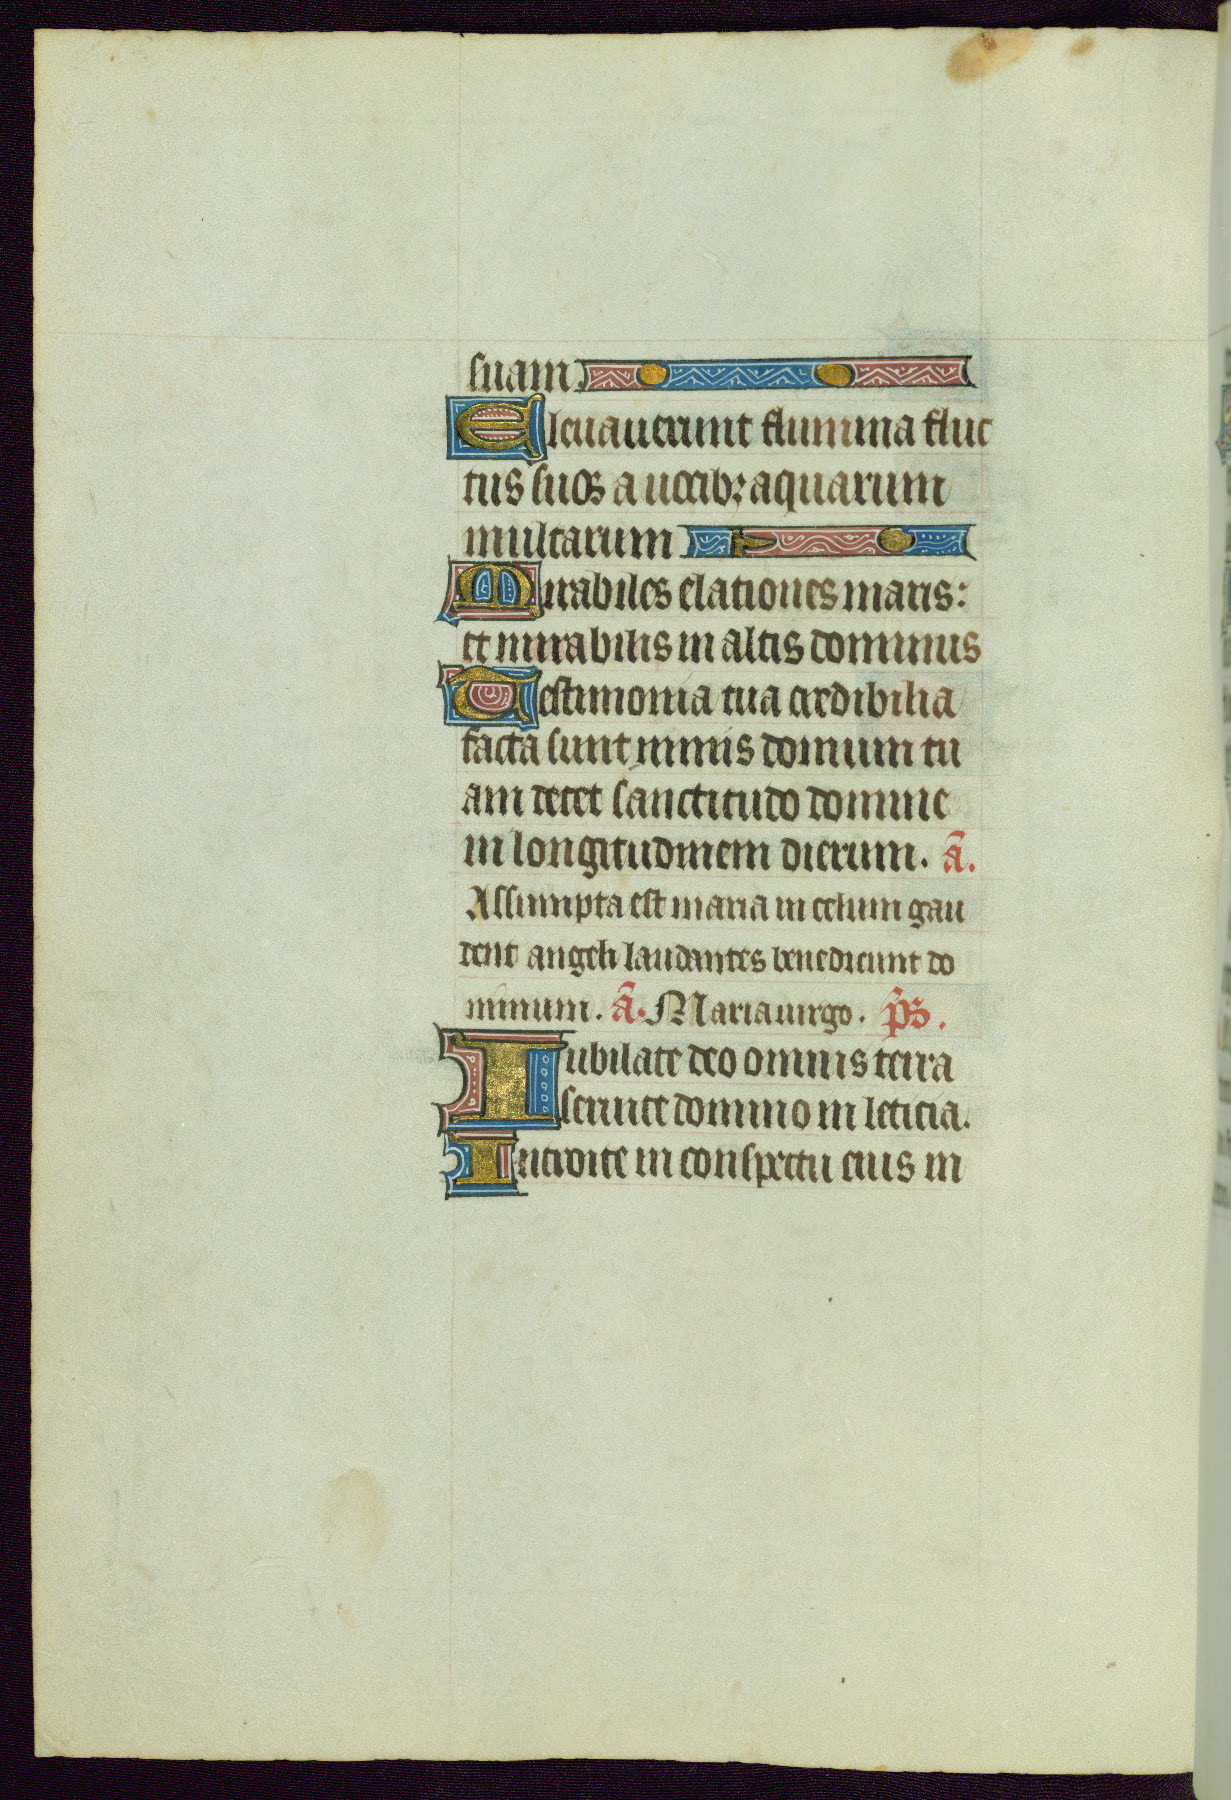 suam.
Eleuauerunt flumina fluc
tus suos a uocibꝫ aquarum
multarum
Mirabiles elationes maris:
et mirabilis in altis dominus
Testimonia tua credibilia
facta sunt nimis domum tu
am decet sanctitudo domine
in longitudinem dierum. ā.
Assumpta est maria in celum gau
dent angeli laudantes benedicunt do
minum. ā. Maria uirgo. p̄s.
Iubilate deo omnis terra
seruite domino in leticia.
Introite in conspectu eius in